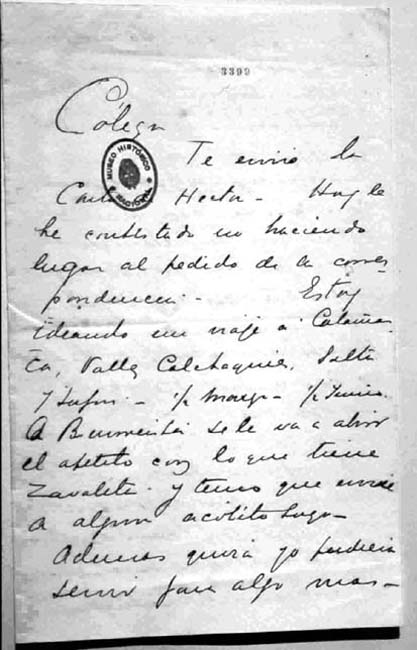 3399
Cólega
MUSEO HISTÓRICO NACIONAL
Te envio la
Carta Hector - Hoy le
he contestado no haciendo
lugar al pedido de la corres
pondencia - Estoy
ideando un viaje a Catamar
ca, Valles Calchaquies, Salta
y Jujuy - p/ Mayo - p/ Junio.
A se le va a abrir
el apetito con lo que tiene
Zavaleta y temo que envie
a algun acólito suyo -
Ademas quizá yo pudiera
servir para algo mas -